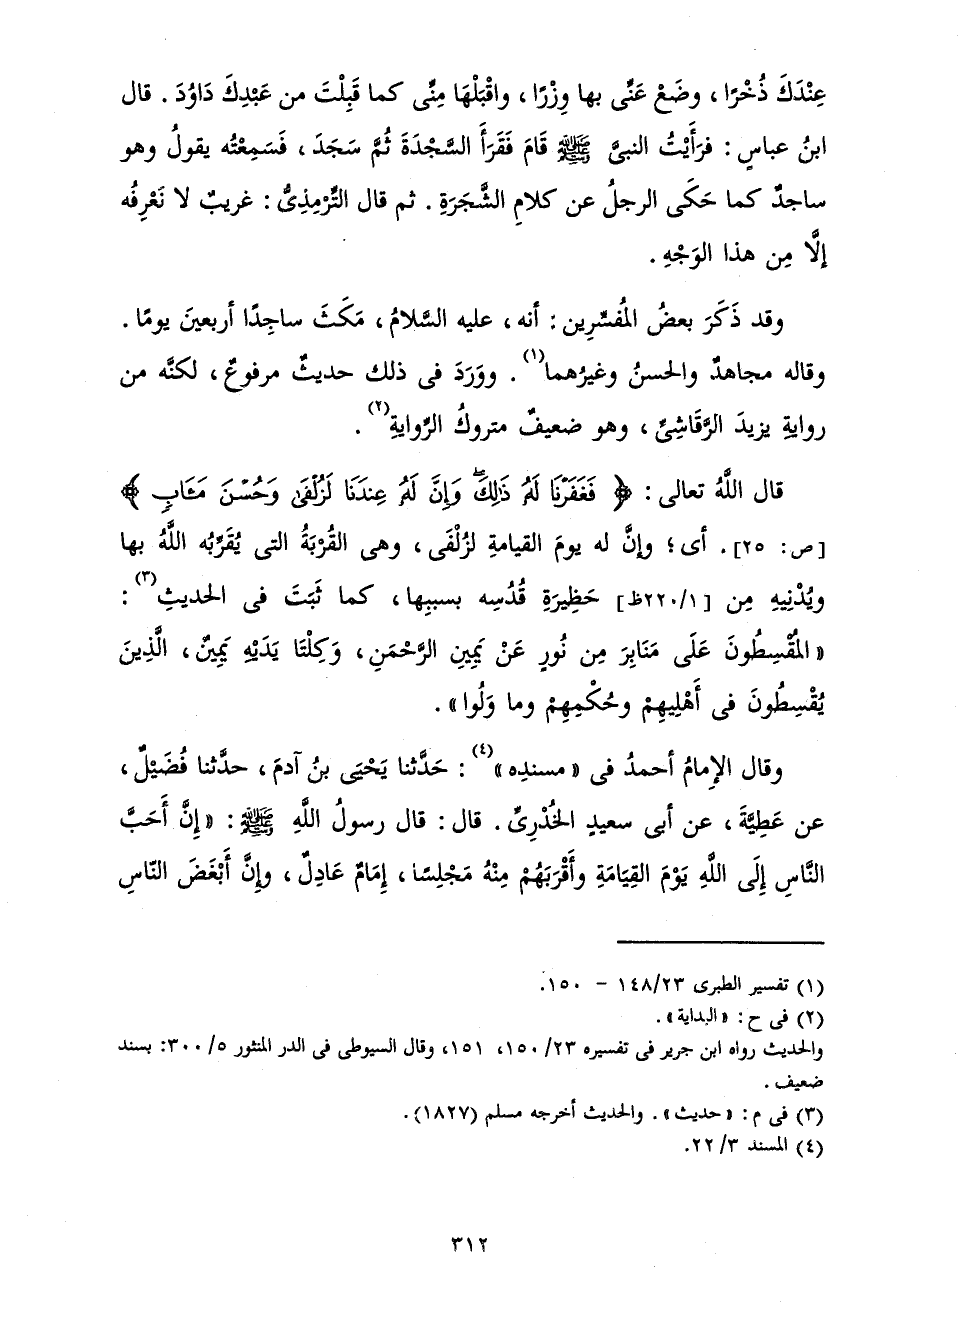 عِنْدَكَ ذُخْرًا ، وضَعْ عَنِّى بها وِزْرًا ، واقْبَلْهَا مِنِّى كما قَبِلْتَ من عَبْدِكَ دَاوُدَ . قال
ابنُ عباسٍ : فرَأَيْتُ النبىَّ ﷺ قَامَ فَقَرَأَ السَّجْدَةَ ثُمَّ سَجَدَ ، فَسَمِعْتُه يقولُ وهو
ساجدٌ كما حَكَى الرجلُ عن كلامِ الشَّجَرَةِ . ثم قال التِّرْمِذِىُّ : غريبٌ لا نَعْرِفُه
إلَّا مِن هذا الوَجْهِ .
وقد ذَكَرَ بعضُ المُفسِّرِين : أنه ، عليه السَّلامُ ، مَكَثَ ساجِدًا أربعينَ يومًا .
وقاله مجاهدٌ والحسنُ وغيرُهما(١) . ووَرَدَ فى ذلك حديثٌ مرفوعٌ ، لكنَّه من
روايةِ يزيدَ الرَّقَاشِىِّ ، وهو ضعيفٌ متروكُ الرِّوايةِ(٢) .
قال اللَّهُ تعالى : ﴿ فَغَفَرْنَا لَهُۥ ذَٰلِكَۖ وَإِنَّ لَهُۥ عِندَنَا لَزُلْفَىٰ وَحُسْنَ مَـَٔابٍ ﴾
[ص: ٢٥] . أى ؛ وإنَّ له يومَ القيامةِ لزُلْفَى ، وهى القُرْبَةُ التى يُقَرِّبُه اللَّهُ بها
ويُدْنِيهِ مِن [٢٢٠/١ظ] حَظِيرَةِ قُدُسِه بسببِها ، كما ثَبَتَ فى الحديثِ(٣) :
« المُقْسِطُونَ عَلَى مَنَابِرَ مِن نُورٍ عَنْ يَمِينِ الرَّحْمَنِ ، وَكِلْتَا يَدَيْهِ يَمِينٌ ، الَّذِينَ
يُقْسِطُونَ فى أَهْلِيهِمْ وحُكْمِهِمْ وما وَلُوا » .
وقال الإمامُ أحمدُ فى « مسندِه »(٤) : حَدَّثنا يَحْيَى بنُ آدمَ ، حدَّثنا فُضَيْلٌ ،
عن عَطِيَّةَ ، عن أبى سعيدٍ الخُدْرِىِّ . قال : قال رسولُ اللَّهِ ﷺ : « إنَّ أَحَبَّ
النَّاسِ إلَى اللَّهِ يَوْمَ القِيَامَةِ وأَقْرَبَهُمْ مِنْهُ مَجْلِسًا ، إمَامٌ عَادِلٌ ، وإنَّ أَبْغَضَ النّاسِ
(١) تفسير الطبرى ١٤٨/٢٣ – ١٥٠.
(٢) فى ح : « البداية » .
والحديث رواه ابن جرير فى تفسيره ٢٣/ ١٥٠، ١٥١، وقال السيوطى فى الدر المنثور ٥/ ٣٠٠: بسند
ضعيف .
(٣) فى م : « حديث » . والحديث أخرجه مسلم (١٨٢٧) .
(٤) المسند ٣/ ٢٢.
٣١٢